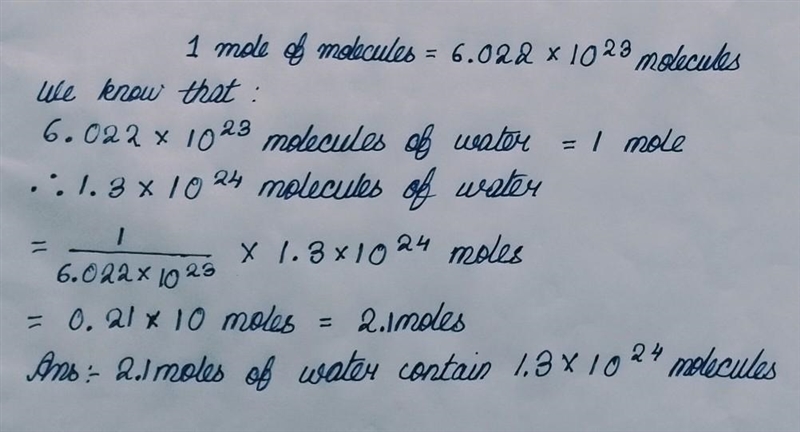 1 mole of molecules = 6.022 × 10²³ molecules
We know that :
6.022 × 10²³ molecules of water = 1 mole
∴ 1.3 × 10²⁴ molecules of water
= 1/6.022×10²³ × 1.3×10²⁴ moles
= 0.21×10 moles = 2.1moles
Ans:- 2.1moles of water contain 1.3×10²⁴ molecules